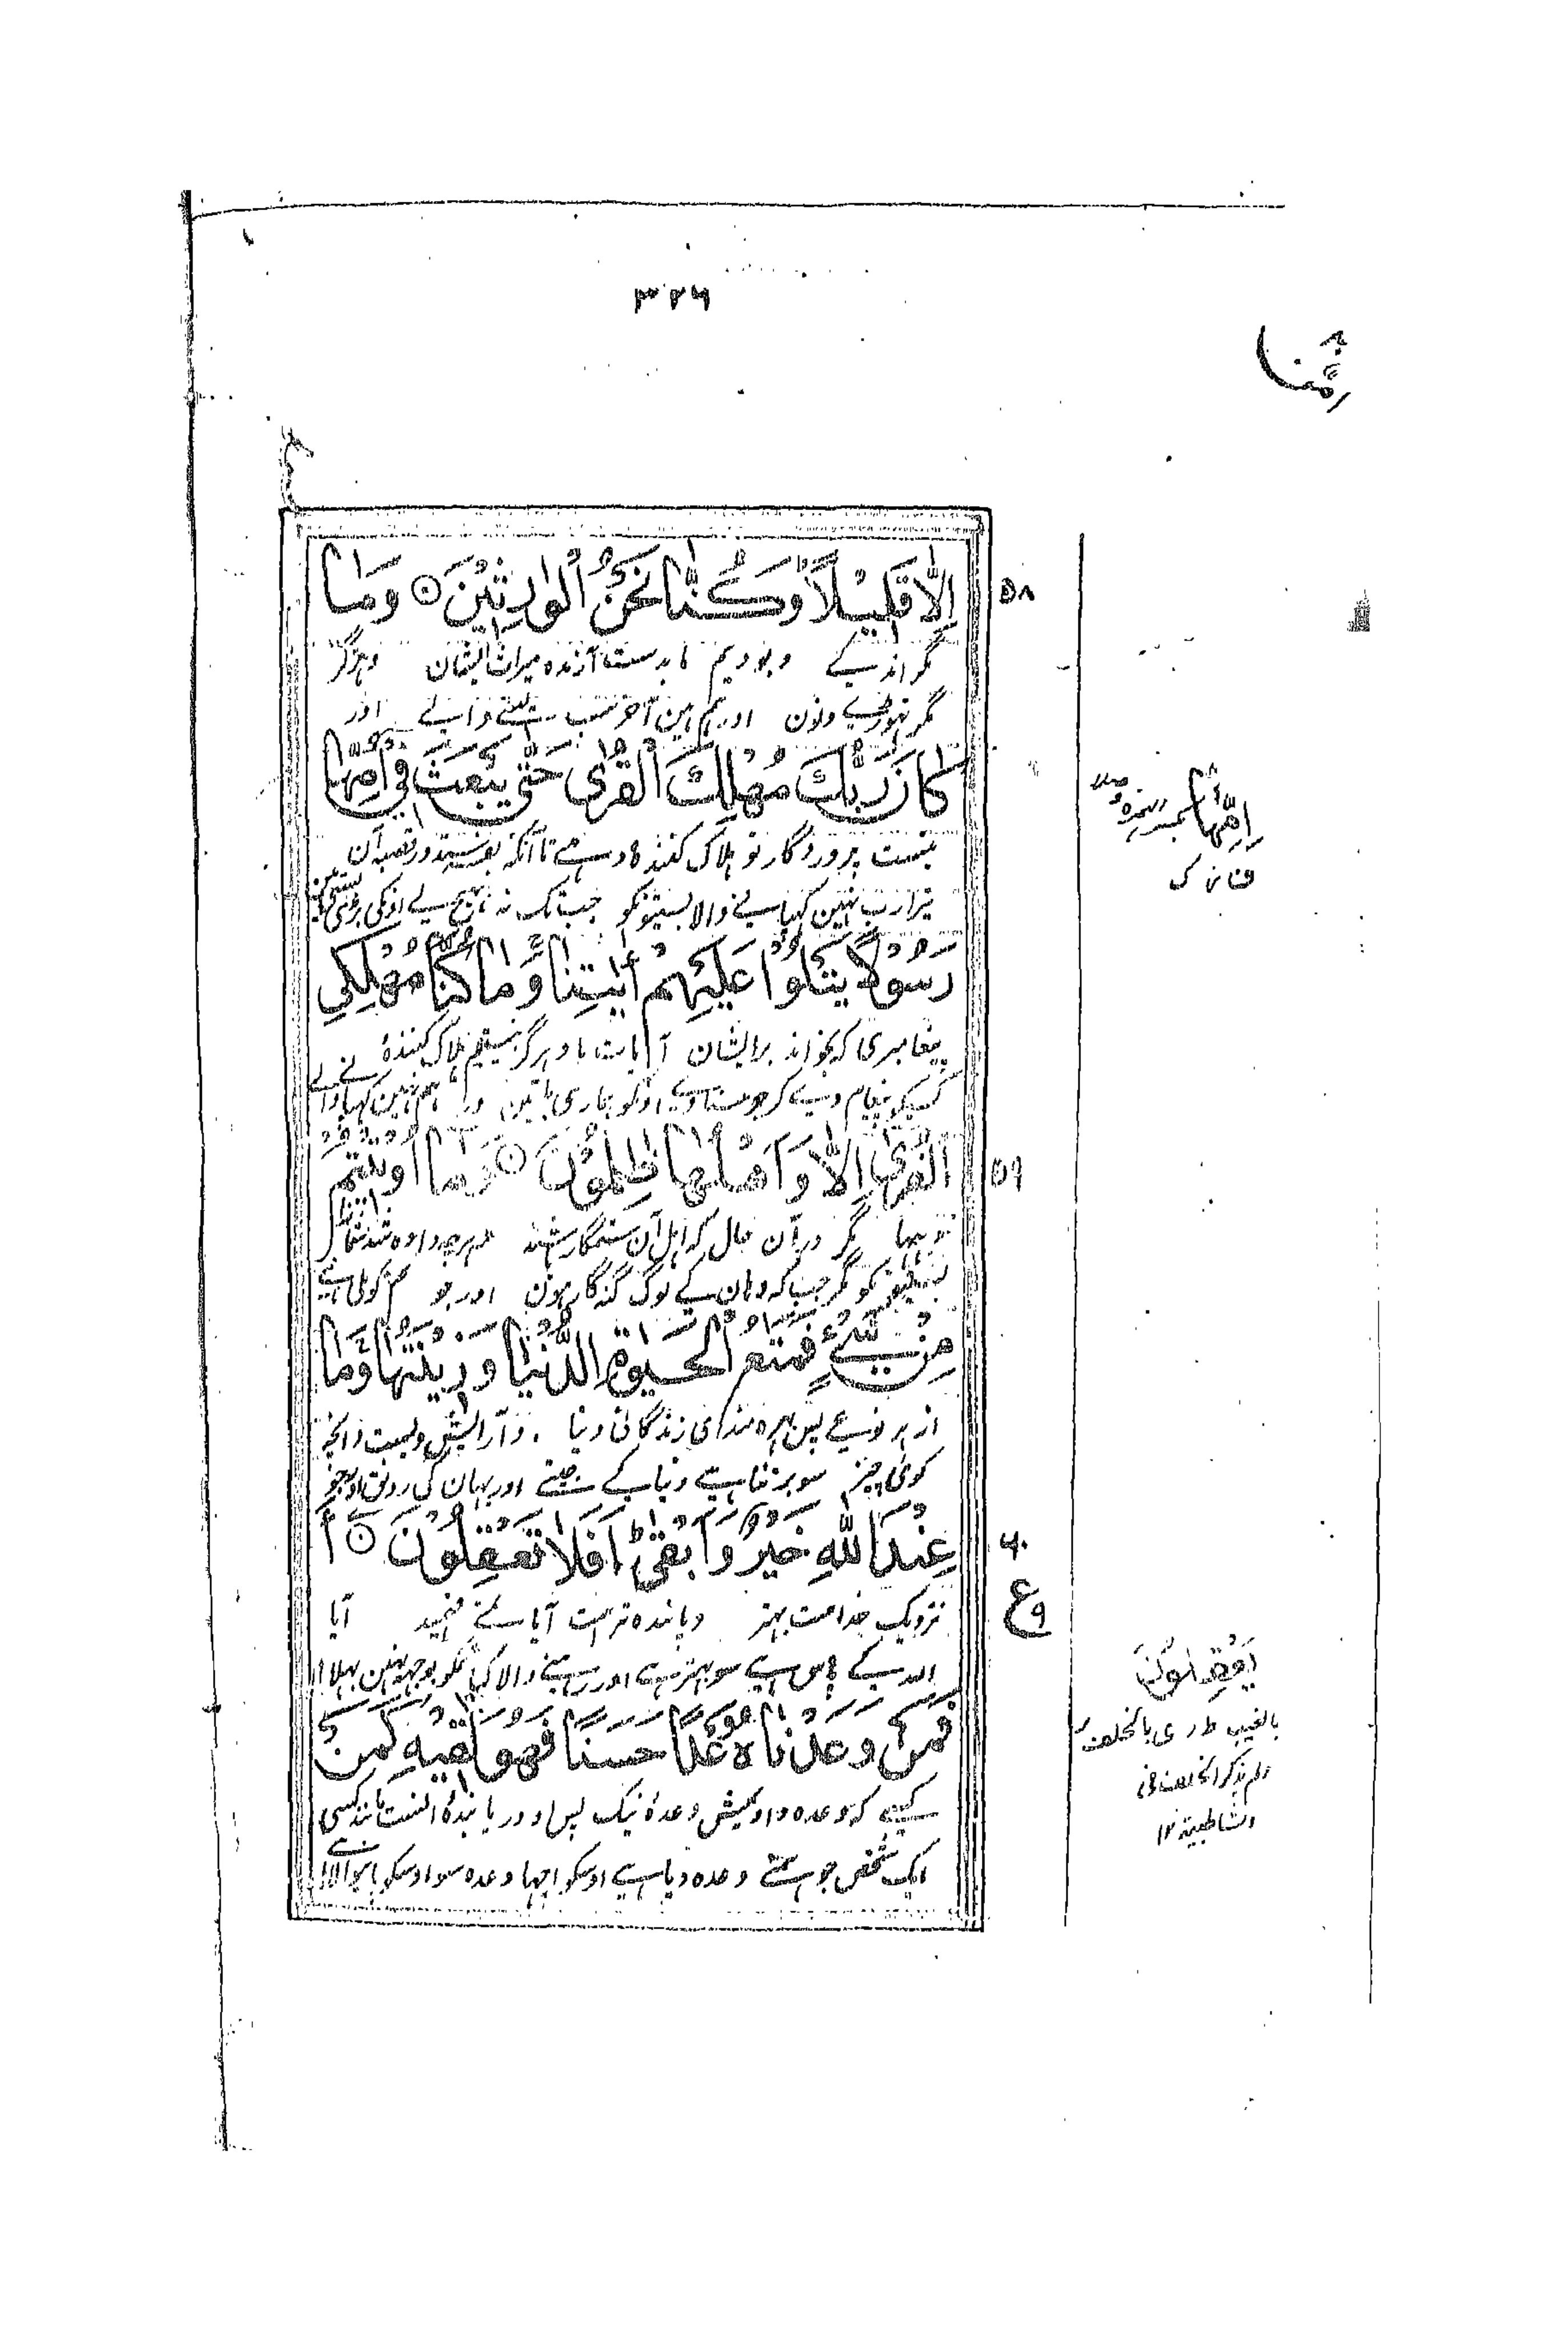 ۳۲۶
إِلَّا قَلِيْلًا وَكُنَّا نَحْنُ الْوَارِثِيْنَ ۝ وَمَا
۵۸
مگر اندکے و بودیم ما بدست آرنده میراث ایشان و هرگز
مگر تهوڑے دنون اور ہم ہین آخر سب لینے والے اور
كَانَ رَبُّكَ مُهْلِكَ الْقُرٰى حَتّٰى يَبْعَثَ فِيْ اُمِّهَا
نیست پروردگار تو ہلاک کننده دہے تا آنکہ بفرستد در قصبہ آن
تیرا رب نہین کہپانے والا بستیونکو جب تک نہ بہیج لے اونکی بڑی بستی مین
رَسُوْلًا يَتْلُوْا عَلَيْهِمْ اٰيٰتِنَا وَمَا كُنَّا مُهْلِكِي
پیغامبری کہ بخواند بر ایشان آیات ما و ہرگز نیستیم ہلاک کنندۂ
کسیکو پیغام دیکے کر جو سناوے اونکو ہماری باتین اور ہم نہین کہپانے والے
الْقُرٰى اِلَّا وَاَهْلُهَا ظٰلِمُوْنَ ۝ وَمَا اُوْتِيْتُمْ
۵۹
دیہہا مگر در آن حال کہ اہل آن ستمگار باشند و ہرچہ داده شد شما را
بستیونکو مگر جب کہ وہان کے لوگ گنہگار ہون اور جو تمکو ملی ہے
مِنْ شَيْءٍ فَمَتَاعُ الْحَيٰوةِ الدُّنْيَا وَزِيْنَتُهَا وَمَا
از ہر نوعے پس بہره مندی زندگانی دنیا و آرایش ویست و آنچہ
کوئی چیز سو برتنا ہے دنیا کے جیتے اور یہان کی رونق اور جو
عِنْدَ اللّٰهِ خَيْرٌ وَّاَبْقٰى ۗ اَفَلَا تَعْقِلُوْنَ ۝ اَ
۶۰
ع ۹
نزدیک خداست بہتر و پاینده تر است آیا نمے فہمید آیا
اللہ کے پاس ہے سو بہتر ہے اور رہنے والا کیا تمکو بوجہہ نہین بہلا
فَمَنْ وَّعَدْنٰهُ وَعْدًا حَسَنًا فَهُوَ لَاقِيْهِ كَمَنْ
کسیکہ وعده دادیمش وعدۂ نیک پس او دریابندۂ آنست مانند کسی
ایک شخص جو ہمنے وعده دیا ہے اوسکو اچہا وعده سو اوسکو پانے والا
اِمِّهَا بکسر الہمزة وصلا
يَعْقِلُوْنَ
بالغیب ط ر ی بالخلف
ولم یذکر الخلف فی
الشاطبیة ۱۲